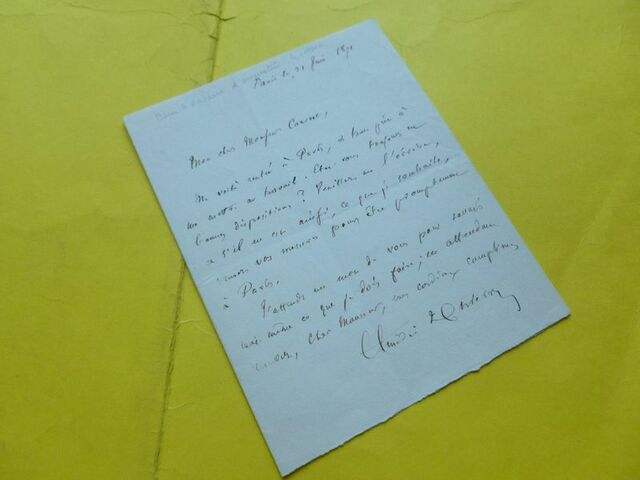 Paris le 21 Juin 1871
Mon cher Monsieur Caverne,
Me voilà rentré à Paris, et bien prêt à
me mettre au travail. Etes vous toujours en
bonnes dispositions ? Veuillez me l'écrire,
et s'il en est ainsi, ce que je souhaite,
vos mesures pour être promptement
à Paris.
J'attends un mot de vous pour
moi-même ce que je dois faire, en attendant
Cher Monsieur, mes cordiaux compliments